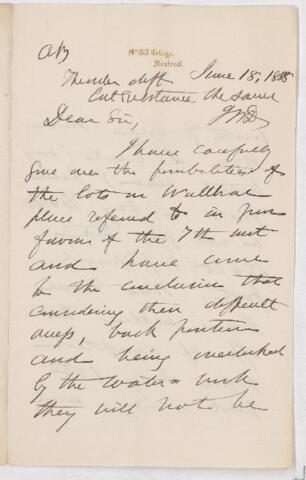 McGill College,
Montreal.
June 18, 1888
the same
Dear Sir,
I have carefully
gone over the possibilities of
the lots in Wallbrae
place referred to in your
favour of the 7th inst
and have come
to the conclusion that
considering their difficult
access, back position
and being overlooked
by the water = work
they will not be